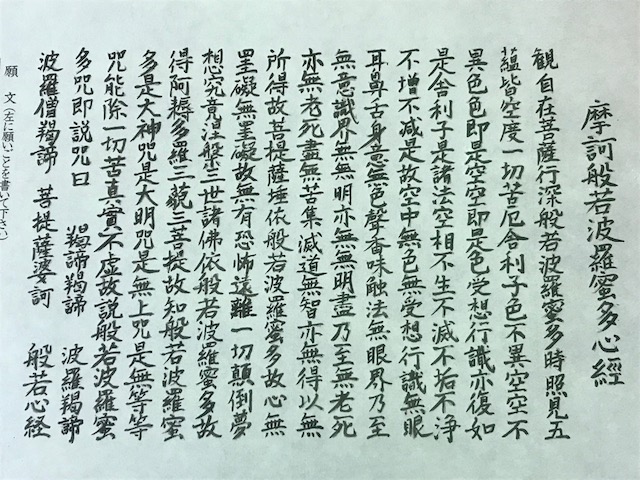 摩訶般若波羅蜜多心經
観自在菩薩行深般若波羅蜜多時照見五
蘊皆空度一切苦厄舎利子色不異空空不
異色色即是空空即是色受想行識亦復如
是舎利子是諸法空相不生不滅不垢不浄
不増不減是故空中無色無受想行識無眼
耳鼻舌身意無色聲香味触法無眼界乃至
無意識界無無明亦無無明盡乃至無老死
亦無老死盡無苦集滅道無智亦無得以無
所得故菩提薩埵依般若波羅蜜多故心無
罣礙無罣礙故無有恐怖遠離一切顛倒夢
想究竟涅槃三世諸佛依般若波羅蜜多故
得阿耨多羅三藐三菩提故知般若波羅蜜
多是大神咒是大明咒是無上咒是無等等
咒能除一切苦真實不虚故説般若波羅蜜
多咒即説咒曰 羯諦羯諦 波羅羯諦
波羅僧羯諦 菩提薩婆訶 般若心経
願 文(左に願いごとを書いて下さい)